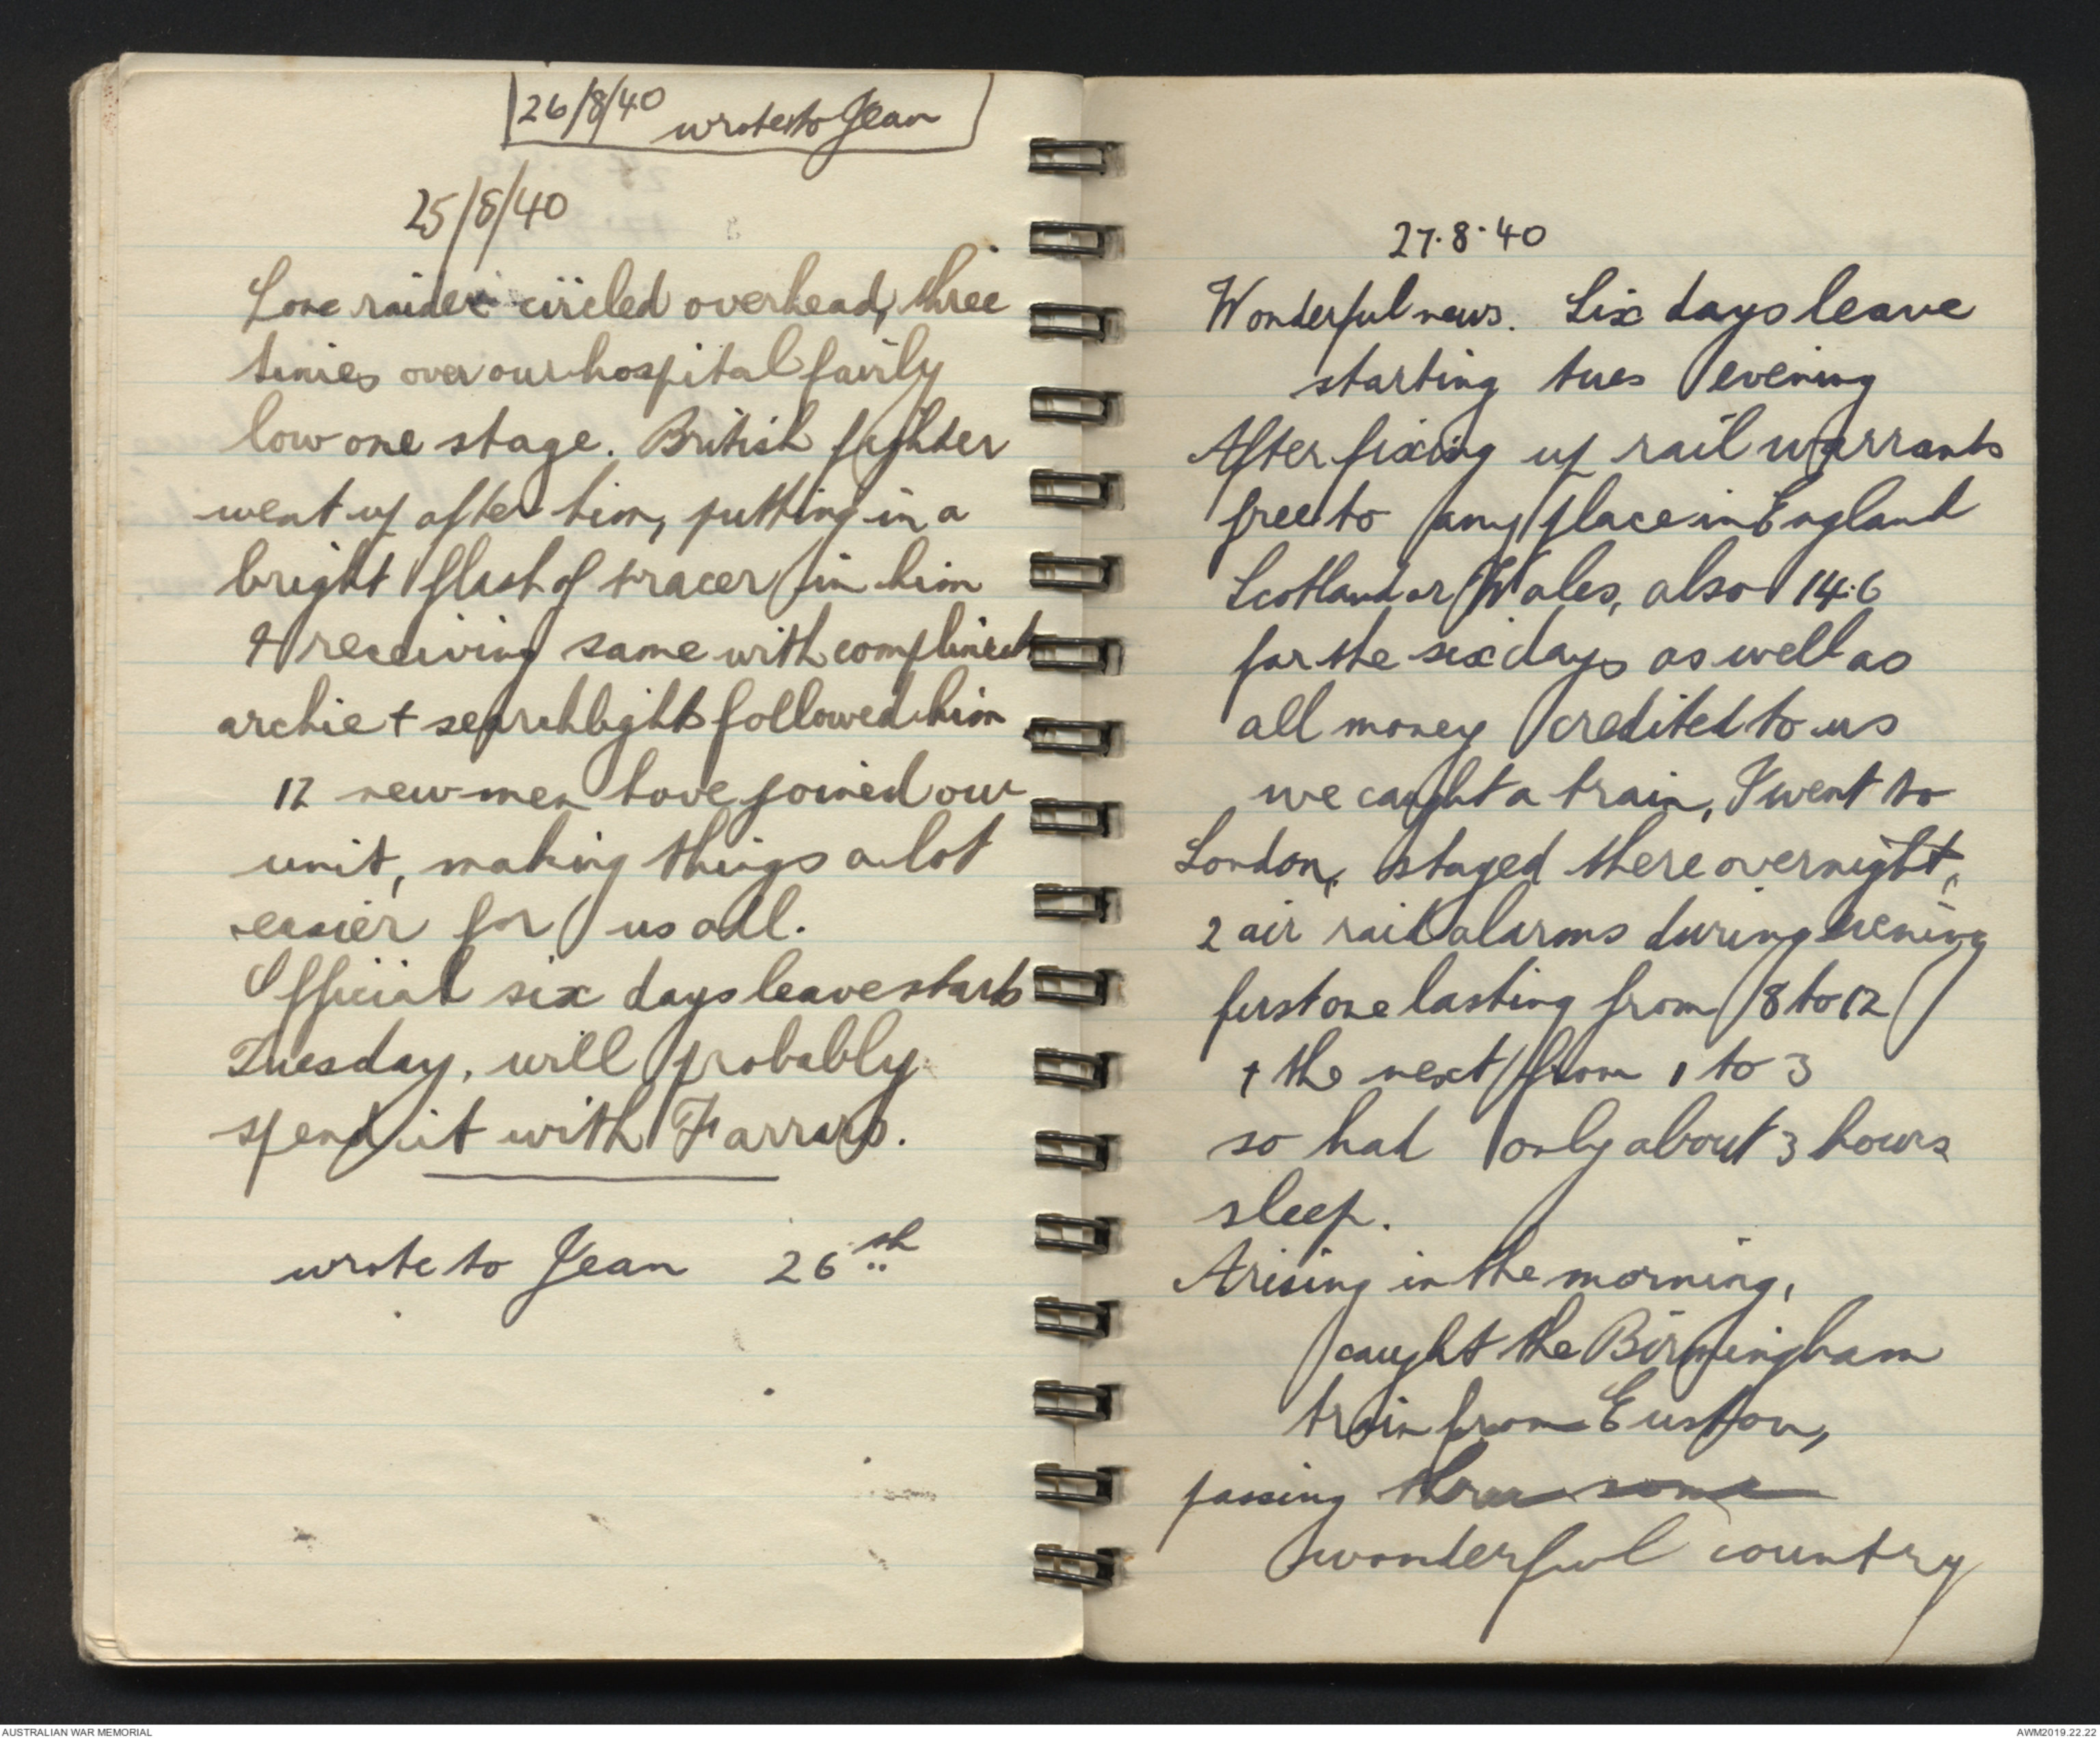 26/8/40 wrote to Jean
25/8/40
Lone raider circled overhead, three
times over our hospital fairly
low one stage. British fighter
went up after him, putting in a
bright flash of tracer in him
& receiving same with compliments
archie + searchlights followed him
12 new men have joined our
unit, making things a lot
easier for us all.
Official six days leave starts
Tuesday, will probably
spend it with Farrars.
wrote to Jean 26th
27.8.40
Wonderful news. Six days leave
starting tues evening
After fixing up rail warrants
free to any place in England
Scotland or Wales, also 14.6
for the six days as well as
all money credited to us
we caught a train, I went to
London, stayed there overnight,
2 air raid alarms during evening
first one lasting from 8 to 12
+ the next from 1 to 3
so had only about 3 hours
sleep.
Arising in the morning,
caught the Birmingham
train from Euston,
passing some
wonderful country
AUSTRALIAN WAR MEMORIAL
AWM2019.22.22